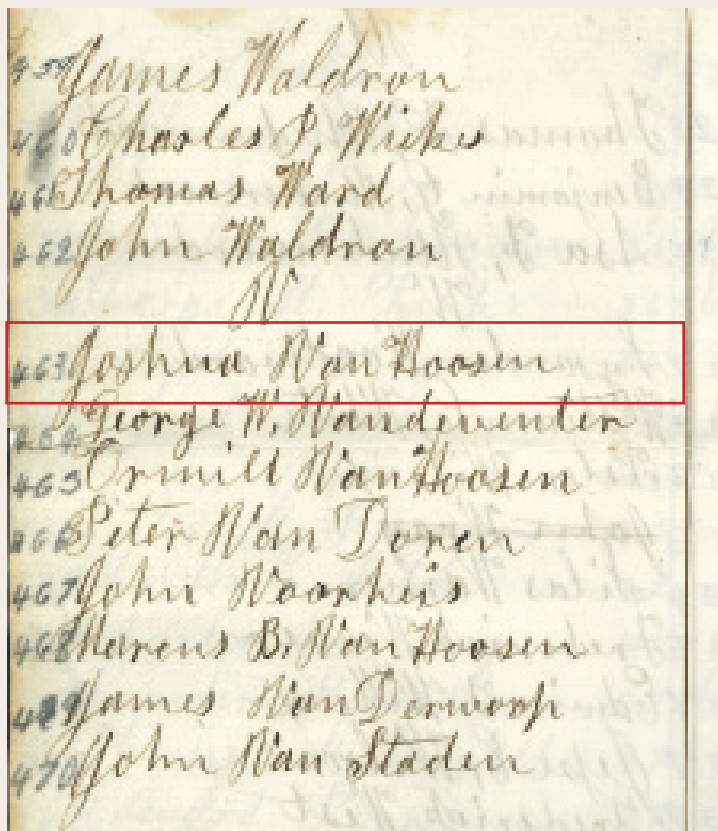 459 James Waldron
460 Charles P. Wicks
461 Thomas Ward
462 John Waldron
V
463 Joshua Van Hoosen
464 George W. Vandeventer
465 Ormilt VanHoosen
466 Peter Van Doren
467 John Voorheis
468 Marcus B. Van Hoosen
469 James VanDerworp
470 John Van Staden